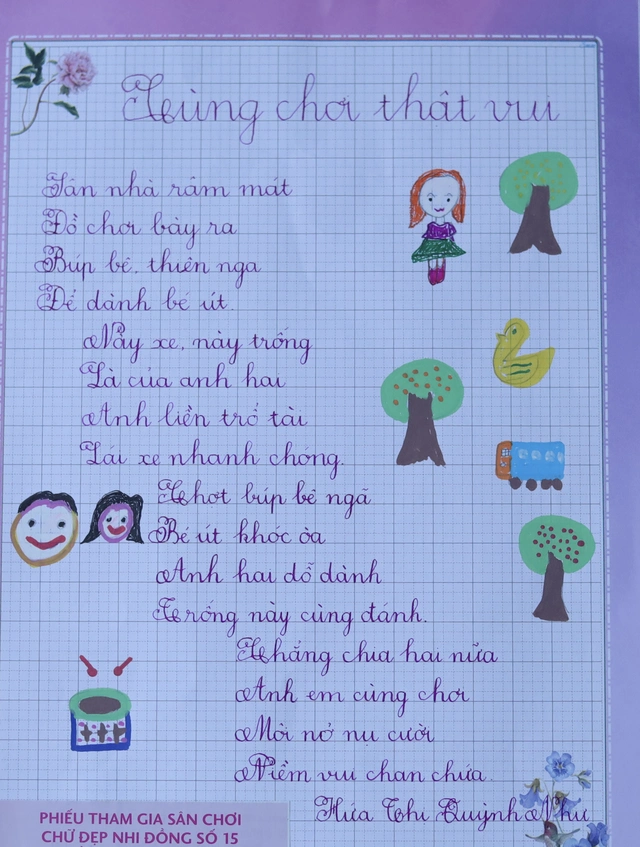 Cùng chơi thật vui
Tán nhà râm mát
Đồ chơi bày ra
Búp bê, thiên nga
Để dành bé út.
Này xe, này trống
Là của anh hai
Anh liền trổ tài
Lái xe nhanh chóng.
Chợt búp bê ngã
Bé út khóc òa
Anh hai dỗ dành
Trống này cùng đánh.
Chẳng chia hai nửa
Anh em cùng chơi
Môi nở nụ cười
Niềm vui chan chứa.
Hứa Thị Quỳnh Như
PHIẾU THAM GIA SÂN CHƠI
CHỮ ĐẸP NHI ĐỒNG SỐ 15